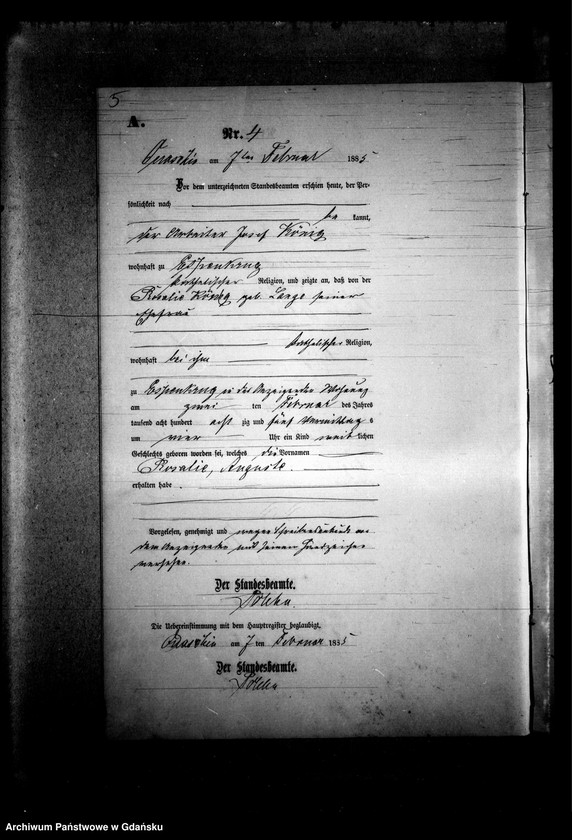 5
A.
Nr. 4
Quaschin am 7ten Februar 1885
Vor dem unterzeichneten Standesbeamten erschien heute, der Per-
sönlichkeit nach
be kannt,
der Arbeiter Josef König
wohnhaft zu Espenkrug
katholischer Religion, und zeigte an, daß von der
Rosalie König geb. Lange seiner
Ehefrau
katholischer Religion,
wohnhaft bei ihm
zu Espenkrug in des Anzeigenden Wohnung
am zwei ten Februar des Jahres
tausend acht hundert acht zig und fünf Vormittags
um Uhr ein Kind weib lichen
Geschlechts geboren worden sei, welches die Vornamen
Rosalie, Auguste
erhalten habe.
Vorgelesen, genehmigt und wegen Schreibensunkunde von
dem Anzeigenden mit seinem Handzeichen
versehen.
Der Standesbeamte.
Die Uebereinstimmung mit dem Hauptregister beglaubigt,
Quaschin am 7 ten Februar 1885
Der Standesbeamte.
Archiwum Państwowe w Gdańsku